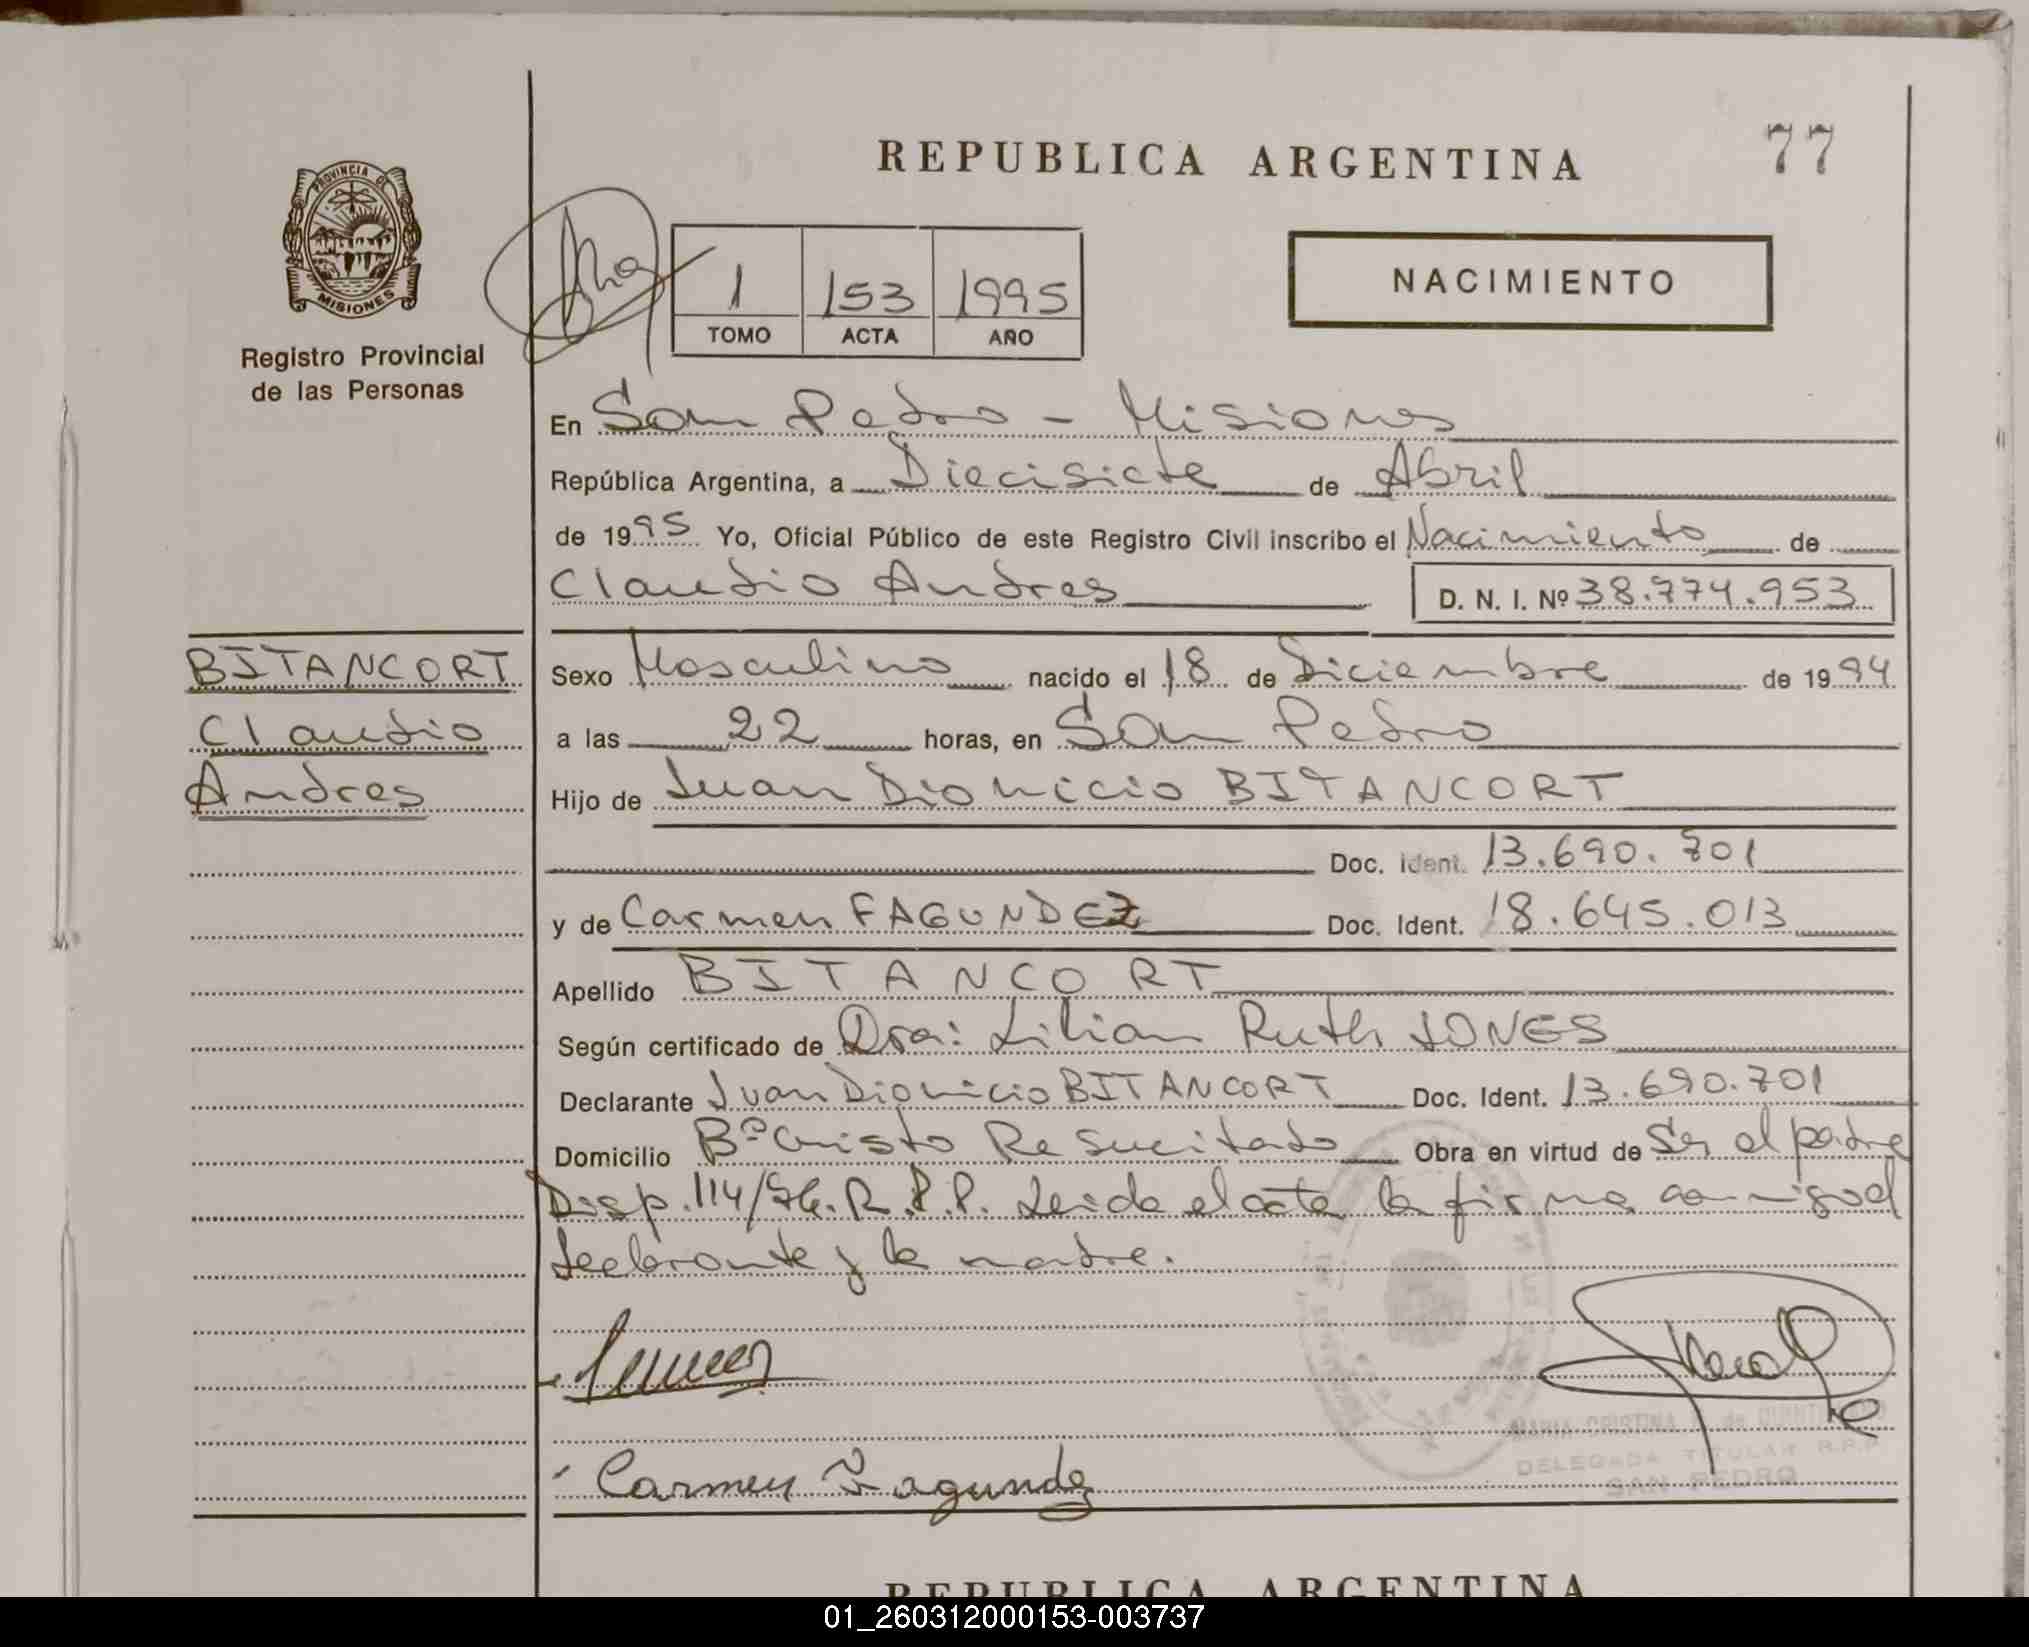 REPUBLICA ARGENTINA
77
PROVINCIA DE
MISIONES
Registro Provincial
de las Personas
1 153 1995
TOMO ACTA AÑO
NACIMIENTO
En San Pedro - Misiones
República Argentina, a Diecisiete de Abril
de 1995 Yo, Oficial Público de este Registro Civil inscribo el Nacimiento de
Claudio Andres D. N. I. Nº 38.774.953
BITANCORT
Claudio
Andres
Sexo Masculino nacido el 18 de Diciembre de 1994
a las 22 horas, en San Pedro
Hijo de Juan Dionicio BITANCORT
Doc. Ident. 13.690.701
y de Carmen FAGUNDEZ Doc. Ident. 18.645.013
Apellido BITANCORT
Según certificado de Dra: Lilian Ruth JONES
Declarante Juan Dionicio BITANCORT Doc. Ident. 13.690.701
Domicilio Bº Cristo Resucitado Obra en virtud de Ser el padre
Disp. 114/ R.P.P. Leida el acta la firma conmigo el
declarante y la madre.
Carmen Fagundez
MARIA CRISTINA de
DELEGADA TITULAR R.P.P.
SAN PEDRO
REPUBLICA ARGENTINA
01_260312000153-003737